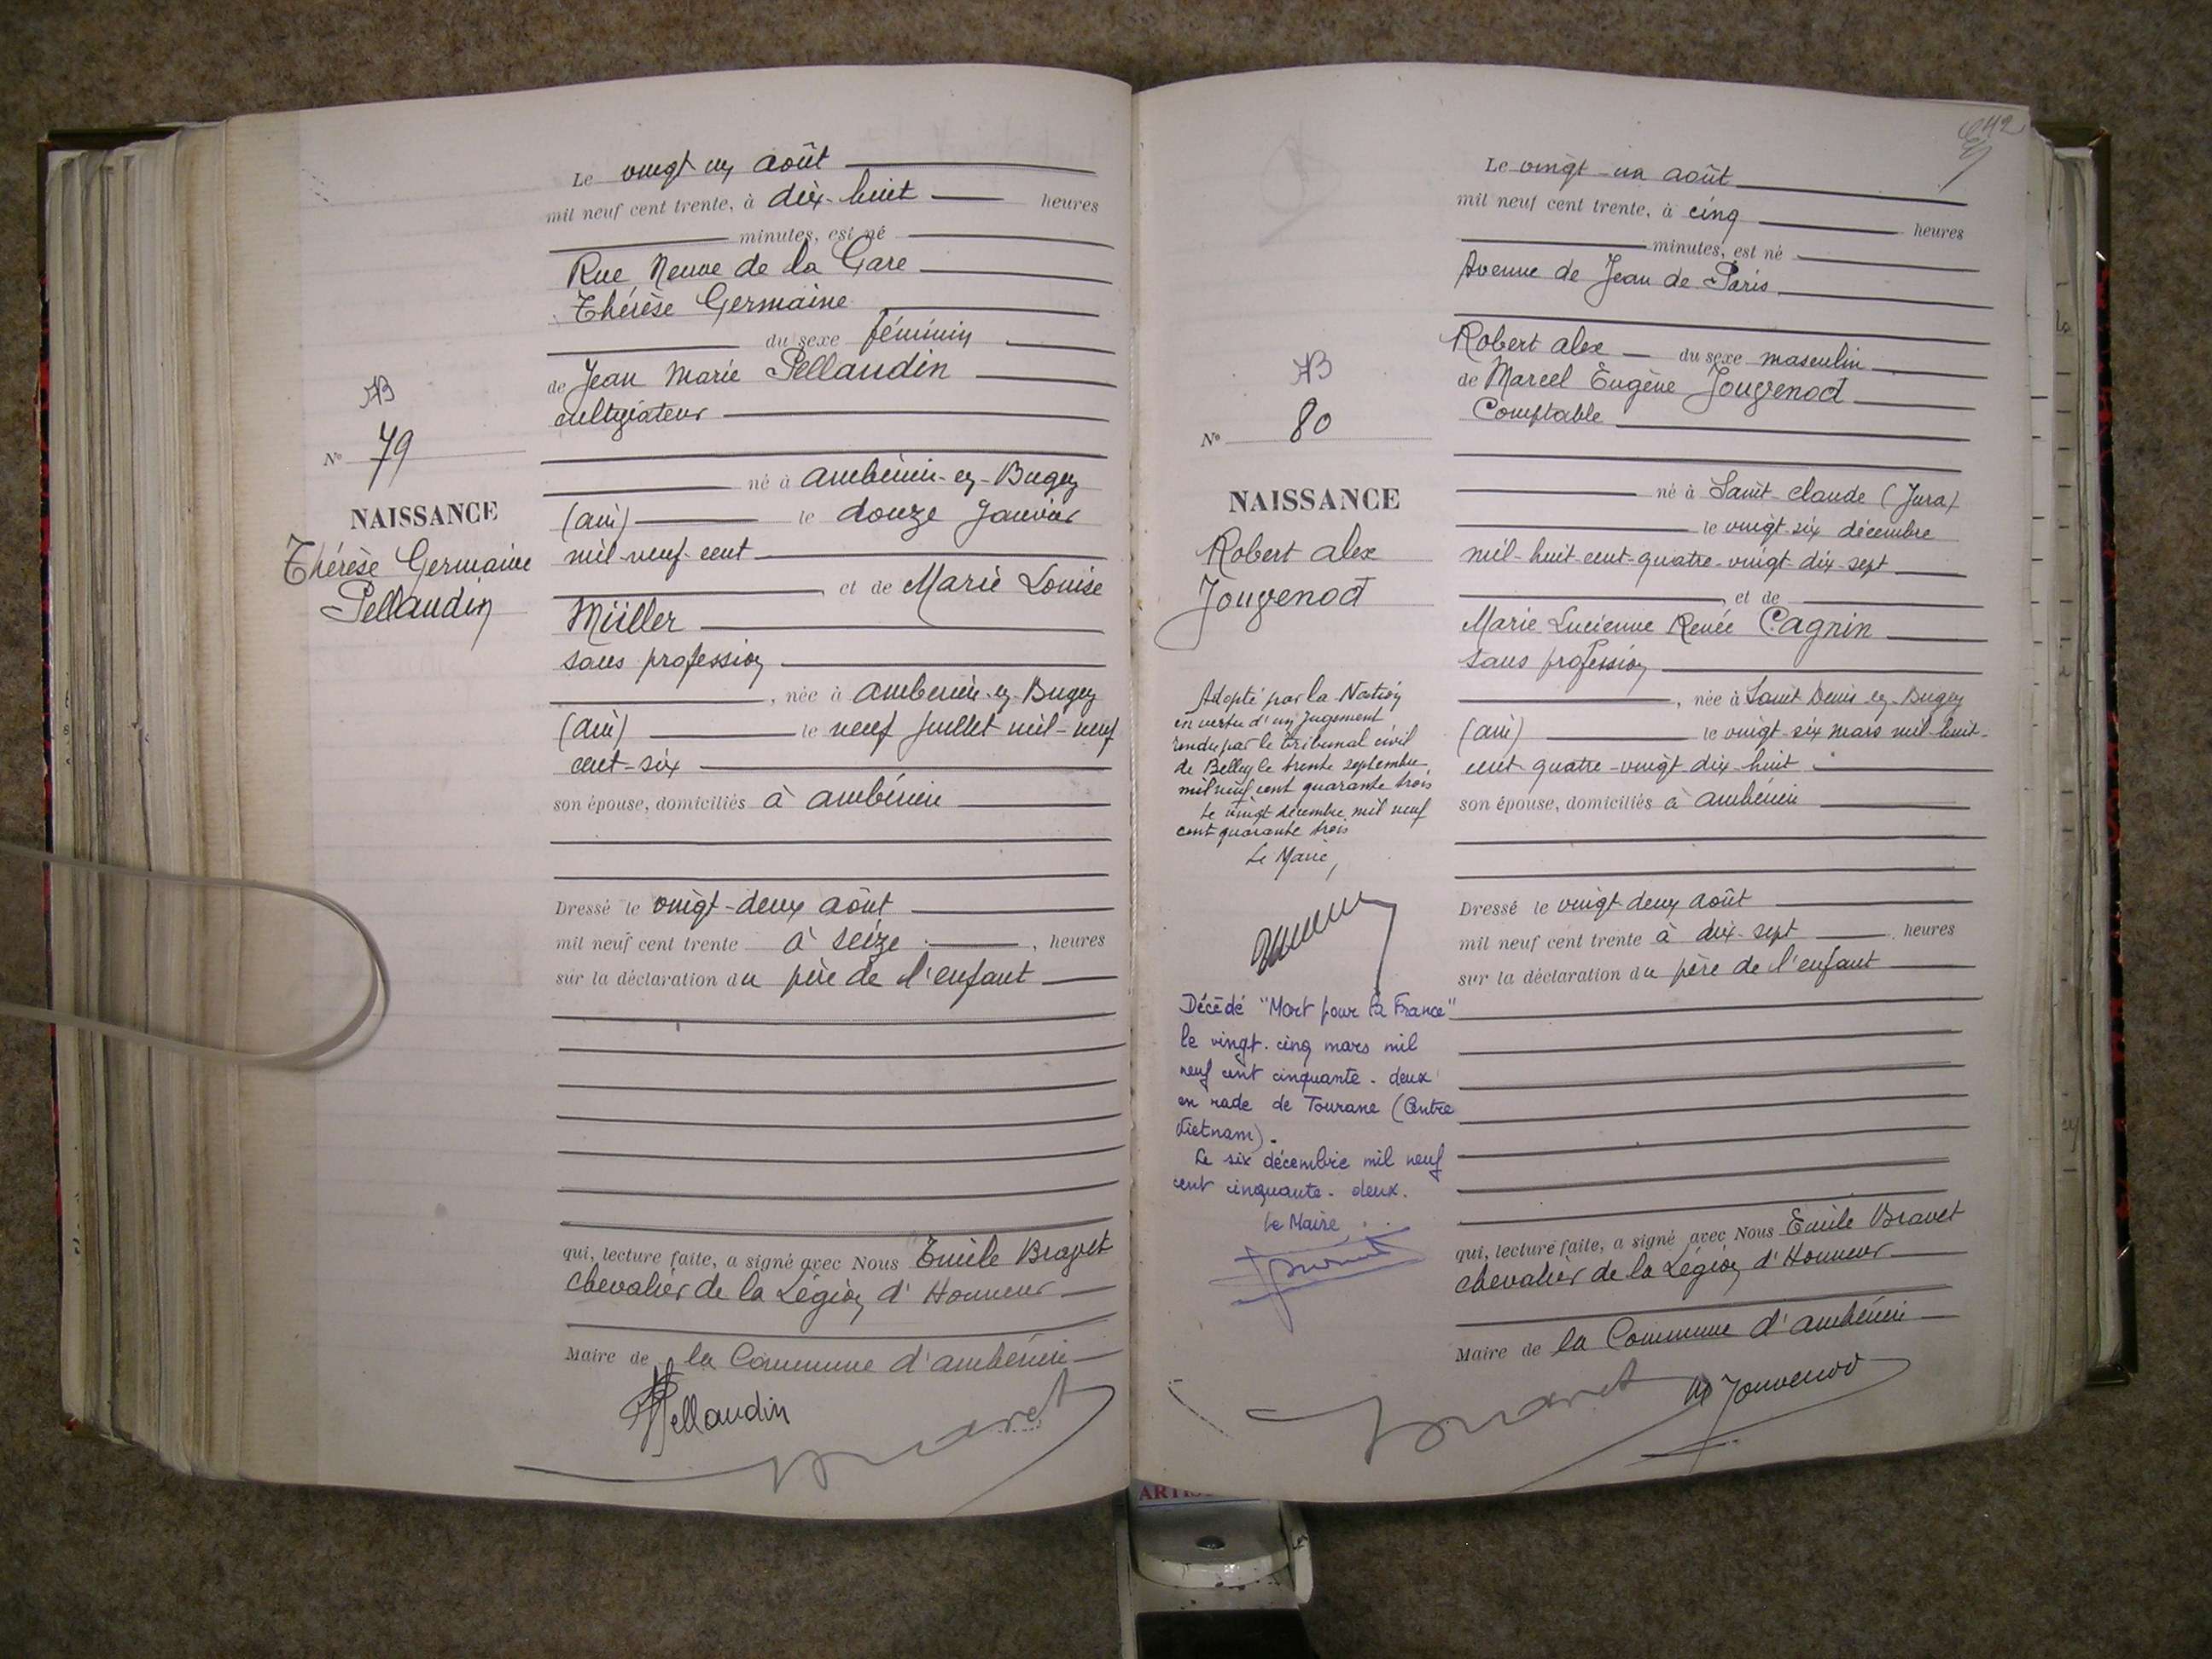 Le vingt un août
mil neuf cent trente, à dix-huit heures
minutes, est né
Rue Neuve de la Gare
Thérèse Germaine
du sexe féminin
de Jean Marie Pellaudin
cultivateur
né à Ambérieu-en-Bugey
(Ain) le douze janvier
mil-neuf-cent
, et de Marie Louise
Müller
sans profession
, née à Ambérieu-en-Bugey
(Ain) le neuf juillet mil-neuf
cent-six
son épouse, domiciliés à Ambérieu
Dressé le vingt-deux août
mil neuf cent trente à seize , heures
sur la déclaration du père de l'enfant
qui, lecture faite, a signé avec Nous Emile Bravet
Chevalier de la Légion d'Honneur
Maire de la Commune d'Ambérieu
Pellaudin
AB
N° 79
NAISSANCE
Thérèse Germaine
Pellaudin
42
Le vingt-un août
mil neuf cent trente, à cinq heures
minutes, est né
Avenue de Jean de Paris
Robert Alex du sexe masculin
de Marcel Eugène Jouvenod
Comptable
né à Saint-Claude (Jura)
le vingt-six décembre
mil-huit-cent-quatre-vingt-dix-sept
, et de
Marie Lucienne Renée Cagnin
sans profession
, née à Saint Denis-en-Bugey
(Ain) le vingt-six mars mil-huit-
cent quatre-vingt dix-huit
son épouse, domiciliés à Ambérieu
Dressé le vingt deux août
mil neuf cent trente à dix-sept heures
sur la déclaration du père de l'enfant
qui, lecture faite, a signé avec Nous Emile Bravet
Chevalier de la Légion d'Honneur
Maire de la Commune d'Ambérieu
Jouvenod
AB
N° 80
NAISSANCE
Robert Alex
Jouvenod
Adopté par la Nation
en vertu d'un jugement
rendu par le tribunal civil
de Belley le trente septembre
mil neuf cent quarante trois
Le vingt décembre mil neuf
cent quarante trois
Le Maire,
Décédé "Mort pour la France"
le vingt-cinq mars mil
neuf cent cinquante-deux
en rade de Tourane (Centre
Vietnam).
Le six décembre mil neuf
cent cinquante-deux.
Le Maire